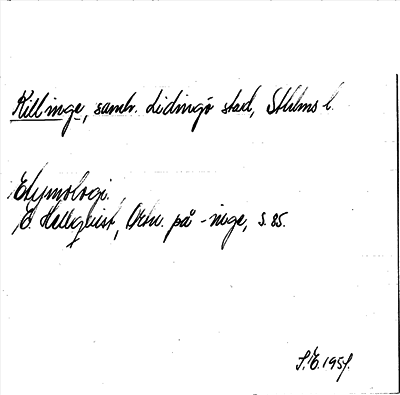 Killinge, samh. Lidingö stad, Sthlms l.
Etymologi.
E. Hellquist, Ortn. på -inge, s. 85.
S.E. 1951.